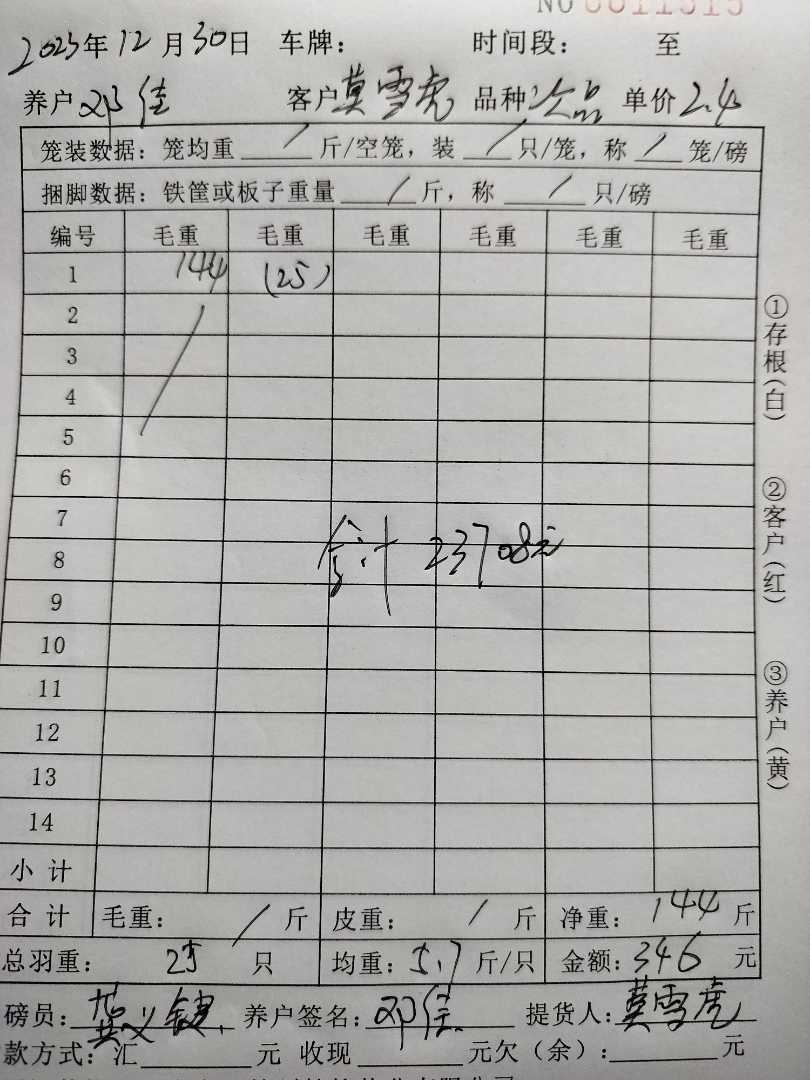 NO 0011315
2023年12月30日 车牌： 时间段： 至
养户 邓佳 客户 莫雪虎 品种：次品 单价 2.4
笼装数据：笼均重 / 斤/空笼，装 / 只/笼，称 / 笼/磅
捆脚数据：铁筐或板子重量 / 斤，称 / 只/磅
编号 毛重 毛重 毛重 毛重 毛重 毛重
1 144 (25)
2
3
4
5
6
7
合计 23708元
8
9
10
11
12
13
14
小计
合计 毛重： / 斤 皮重： / 斤 净重：144 斤
总羽重： 25 只 均重：5.7 斤/只 金额：346 元
磅员：龚义键 养户签名：邓佳 提货人：莫雪虎
款方式：汇 元 收现 元欠（余）： 元
①存根(白)
②客户(红)
③养户(黄)